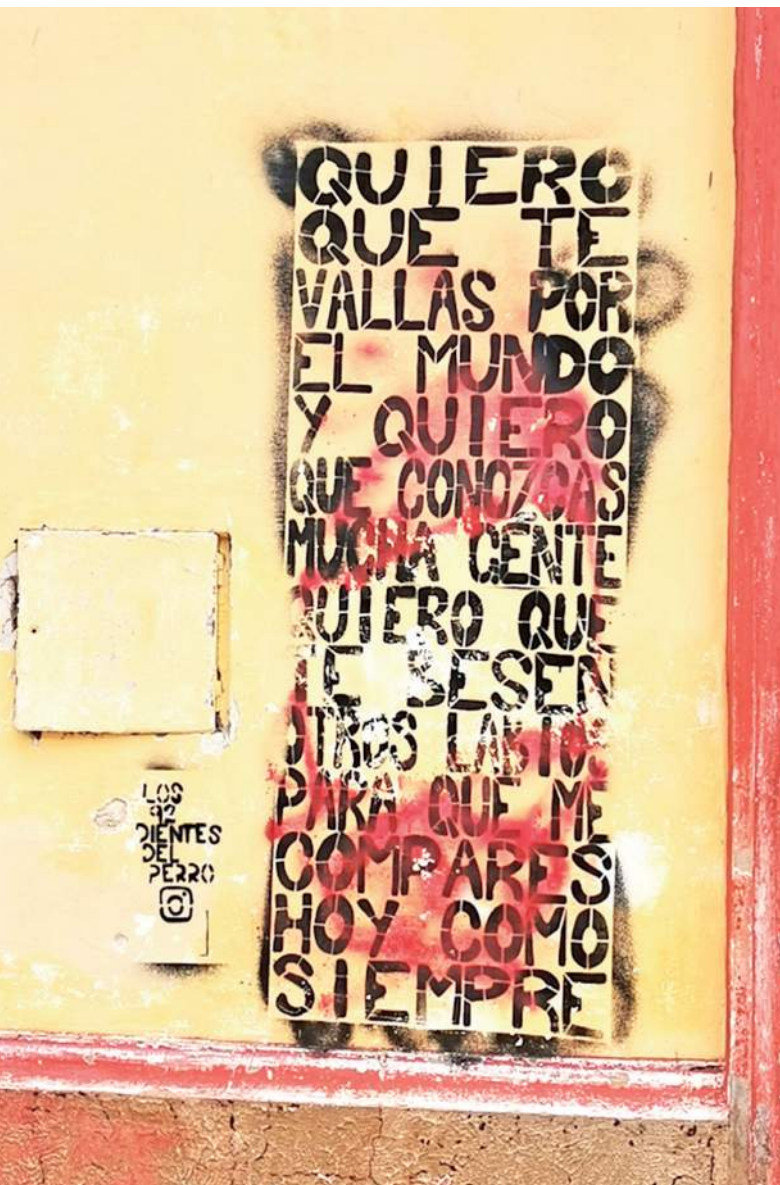 QUIERO
QUE TE
VALLAS POR
EL MUNDO
Y QUIERO
QUE CONOZCAS
MUCHA GENTE
QUIERO QUE
TE BESEN
OTROS LABIOS
PARA QUE ME
COMPARES
HOY COMO
SIEMPRE
LOS
DIENTES
DEL
PERRO